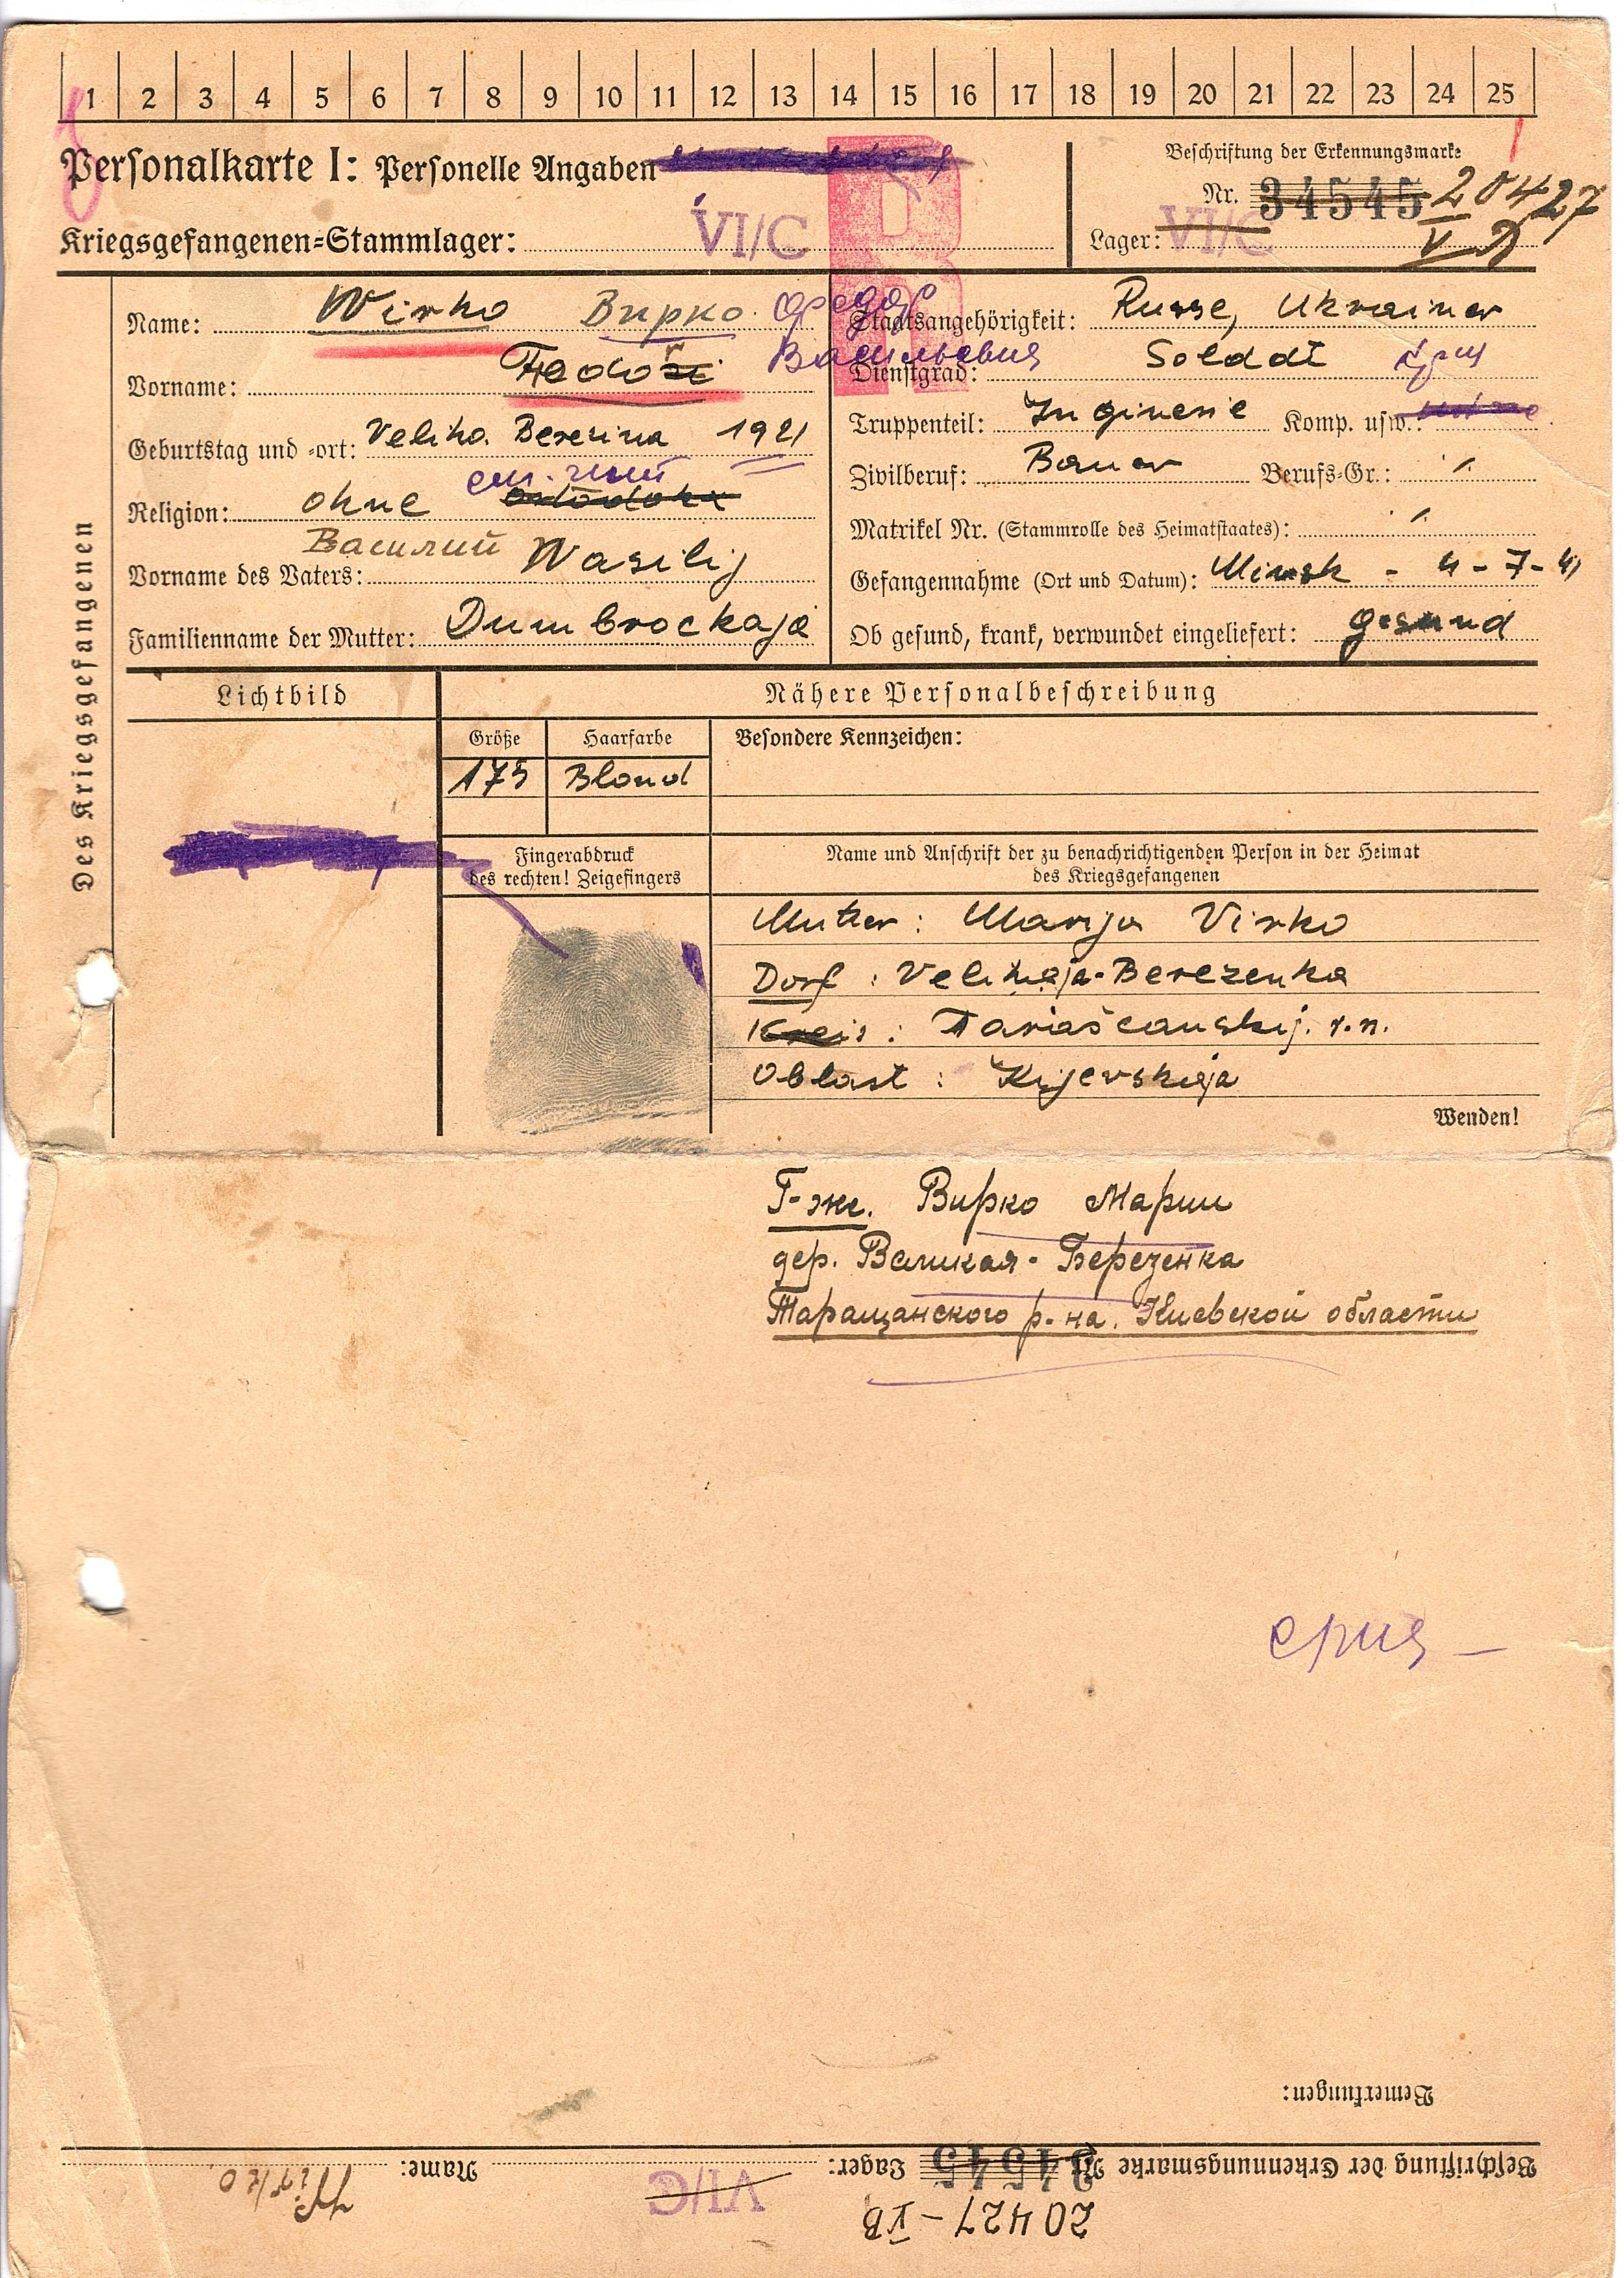 1 2 3 4 5 6 7 8 9 10 11 12 13 14 15 16 17 18 19 20 21 22 23 24 25
Personalkarte I: Personelle Angaben
Beschriftung der Erkennungsmarke
Nr. 34545 20427
Kriegsgefangenen=Stammlager: VI/C
Lager: VI/C V B
R
Des Kriegsgefangenen
Name: Wirko Вирко
Staatsangehörigkeit: Russe, Ukrainer
Васильевич
Vorname: Feodor
Dienstgrad: Soldat
Geburtstag und =ort: Veliko. Beresina 1921
Truppenteil: Inginerie Komp. usw.:
Zivilberuf: Bauer Berufs=Gr.: /
Religion: ohne ortodoks
Matrikel Nr. (Stammrolle des Heimatstaates): /
Василий
Vorname des Vaters: Wasilij
Gefangennahme (Ort und Datum): Minsk - 4-7-41
Familienname der Mutter: Dumbrockaja
Ob gesund, krank, verwundet eingeliefert: gesund
Lichtbild
Nähere Personalbeschreibung
Größe Haarfarbe Besondere Kennzeichen:
175 Blond
Fingerabdruck
des rechten! Zeigefingers
Name und Anschrift der zu benachrichtigenden Person in der Heimat
des Kriegsgefangenen
Mutter: Marija Virko
Dorf: Velikaja-Berezenka
Kreis: Tariaščanskij. r.n.
Oblast: Kijevskaja
Wenden!
Г-же. Вирко Марии
дер. Великая-Березенка
Таращанского р-на. Киевской области
Bemerkungen:
Beschriftung der Erkennungsmarke Nr. 34545 Lager: VI/C Name: Wirko
20427 - V B